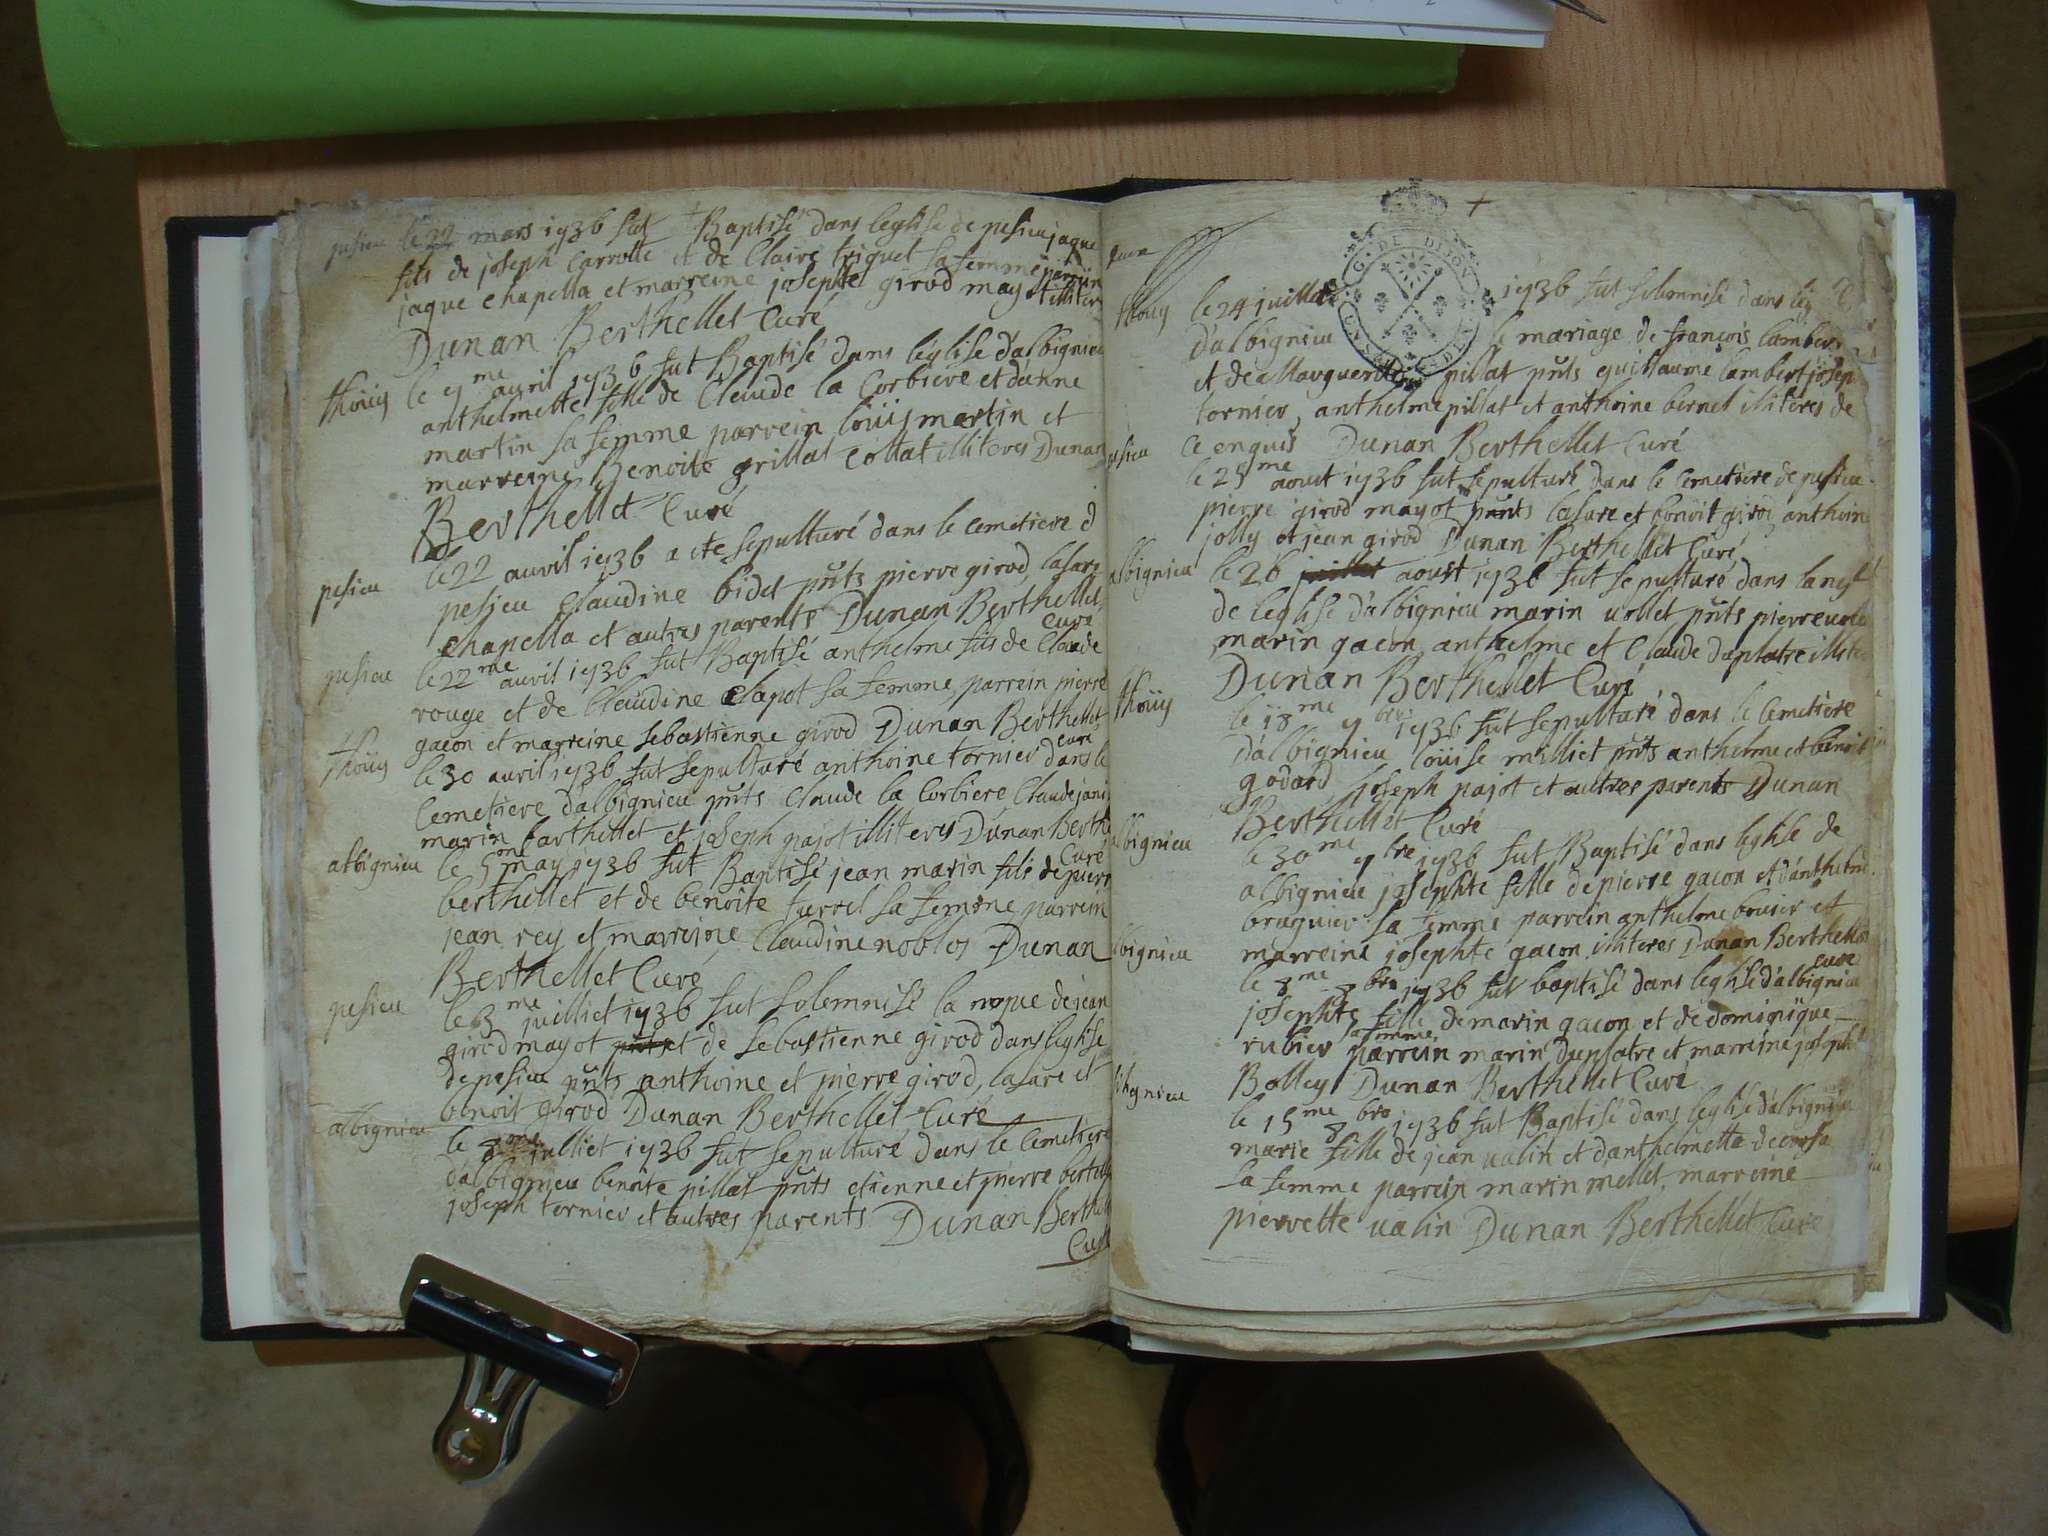 pesieu le 22 mars 1736 fut Baptisé dans leglise de pesieu jaque
fils de joseph Carrotte et de Claire triquet sa femme parrein
jaque chapella et marreine josephte girod mayot
Dunan Berthellet Curé
thoüy le 7me auril 1736 fut Baptisé dans léglise dalbignieu
anthelmette fille de Claude la Corbiere et danne
martin sa femme parrein loüis martin et
marreine Benoite grillat Collat illiteres Dunan
Berthellet Curé
pesieu le 22 auvril 1736 a ete sepulturé dans le cemetiere d
pesieu Claudine bidet pnts pierre girod, lasare
chapella et autres parents Dunan Berthellet
Curé
pesieu le 22me auvril 1736 fut Baptisé anthelme fils de Claude
rouge et de Claudine Clapot sa femme, parrein pierre
gacon et marreine sebastienne girod Dunan Berthellet
Curé
thoüy le 30 auril 1736 fut sepulturé anthoine tornier dans le
Cemetiere dalbignieu pnts Claude la Corbiere Claude jani
marin barthellet et joseph pajot illiteres Dunan Berthe
Curé
albignieu le 5me may 1736 fut Baptisé jean marin fils de pierre
berthellet et de benoite furrel sa femme parrein
jean rey et marreine Claudine noblos Dunan
Berthellet Curé
pesieu le 3me juilliet 1736 fut solemnisé la nopce de jean
girod mayot et de sebastienne girod dans leglise
de pesieu pnts anthoine et pierre girod, lasare et
benoit girod Dunan Berthellet Curé
albignieu le 8me julliet 1736 fut sepulturé dans le Cemetiere
dalbignieu benoite pillat pnts etienne et pierre bertelle
joseph tornier et autres parents Dunan Berthe
Curé
G. DE DIJON
thoüy le 24 juillet 1736 fut solemnisé dans leg
dalbignieu le mariage de françois lambert
et de Marguerite pillat pnts guillaume lambert josep
tornier, anthelme pillat et anthoine bernet illiteres de
ce enquis Dunan Berthellet Curé
pesieu le 25me aoust 1736 fut sepulturé dans le Cemetiere de pesieu
pierre girod mayot pnts lasare et benoit girod anthoine
jolly et jean girod Dunan Berthellet Curé
albignieu le 26 aoust 1736 fut sepulturé dans la nef
de leglise dalbignieu marin uollet pnts pierre uolle
marin gacon anthelme et Claude duplatre illite
Dunan Berthellet Curé
thoüy le 18me 7bre 1736 fut sepulturé dans le Cemetiere
dalbignieu loüise milliet pnts anthelme et benoit
godard, joseph pajot et autres parents Dunan
Berthellet Curé
albignieu le 30me 7bre 1736 fut Baptisé dans leglise de
albignieu josephte fille de pierre gacon et danthelme
bruguier sa femme parrein anthelme bouvier et
marreine josephte gacon illiteres Dunan Berthellet
Curé
albignieu le 8me 8bre 1736 fut baptisé dans leglise dalbignieu
josephte fille de marin gacon et de dominique
rubier sa femme parrein marin duplatre et marreine josepht
Bolley Dunan Berthellet Curé
albignieu le 15me 8bre 1736 fut Baptisé dans leglise dalbignieu
marie fille de jean ualin et danthelmette
la femme parrein marin mellet, marreine
pierrette ualin Dunan Berthellet Curé